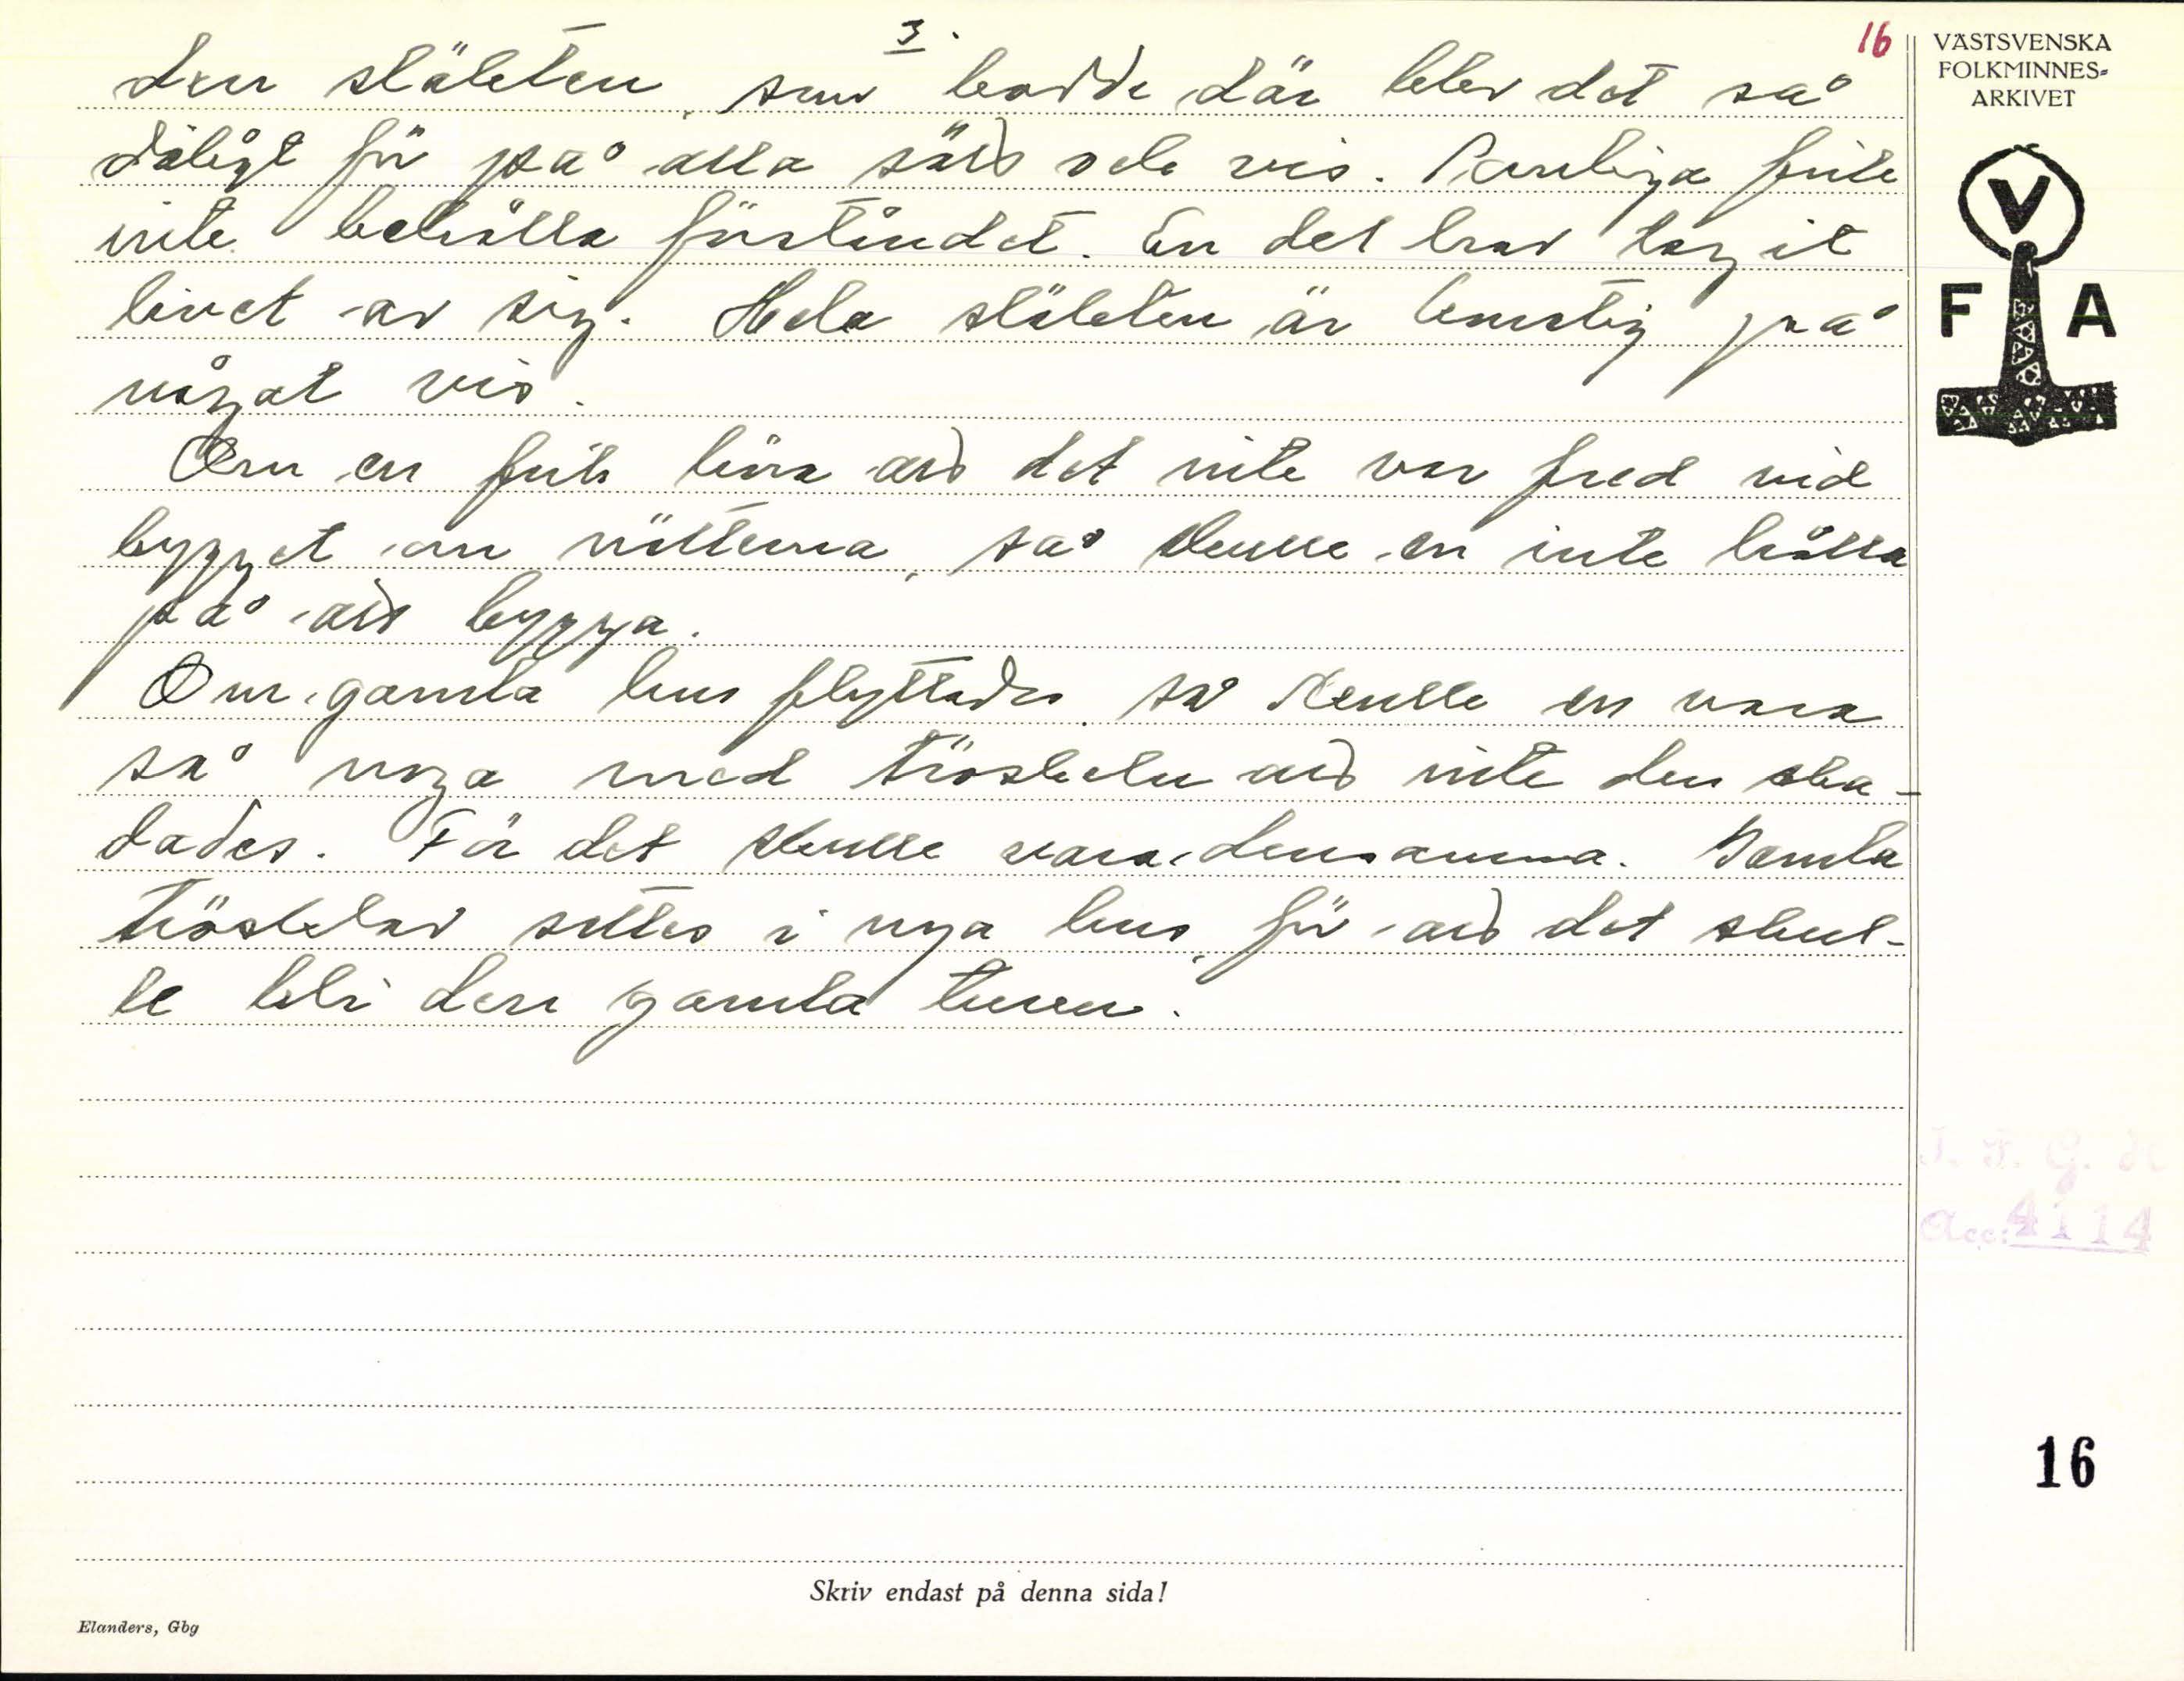 3.
16
den släkten, som bodde där blev det så
dåligt för på alla sätt och vis. Somliga fick
inte behålla förståndet. En del har tagit
livet av sig. Hela släkten är konstig på
något vis.
Om en fick höra att det inte var fred vid
bygget om nätterna, så skulle en inte hålla
på att bygga.
Om gamla hus flyttades, så skulle en vara
så noga med tröskeln att inte den ska-
dades. För det skulle vara densamma. Gamla
trösklar sattes i nya hus, för att det skul-
le bli den gamla turen.
VÄSTSVENSKA
FOLKMINNES-
ARKIVET
V
F A
I. F. G. H
Acc: 4114
16
Skriv endast på denna sida!
Elanders, Gbg